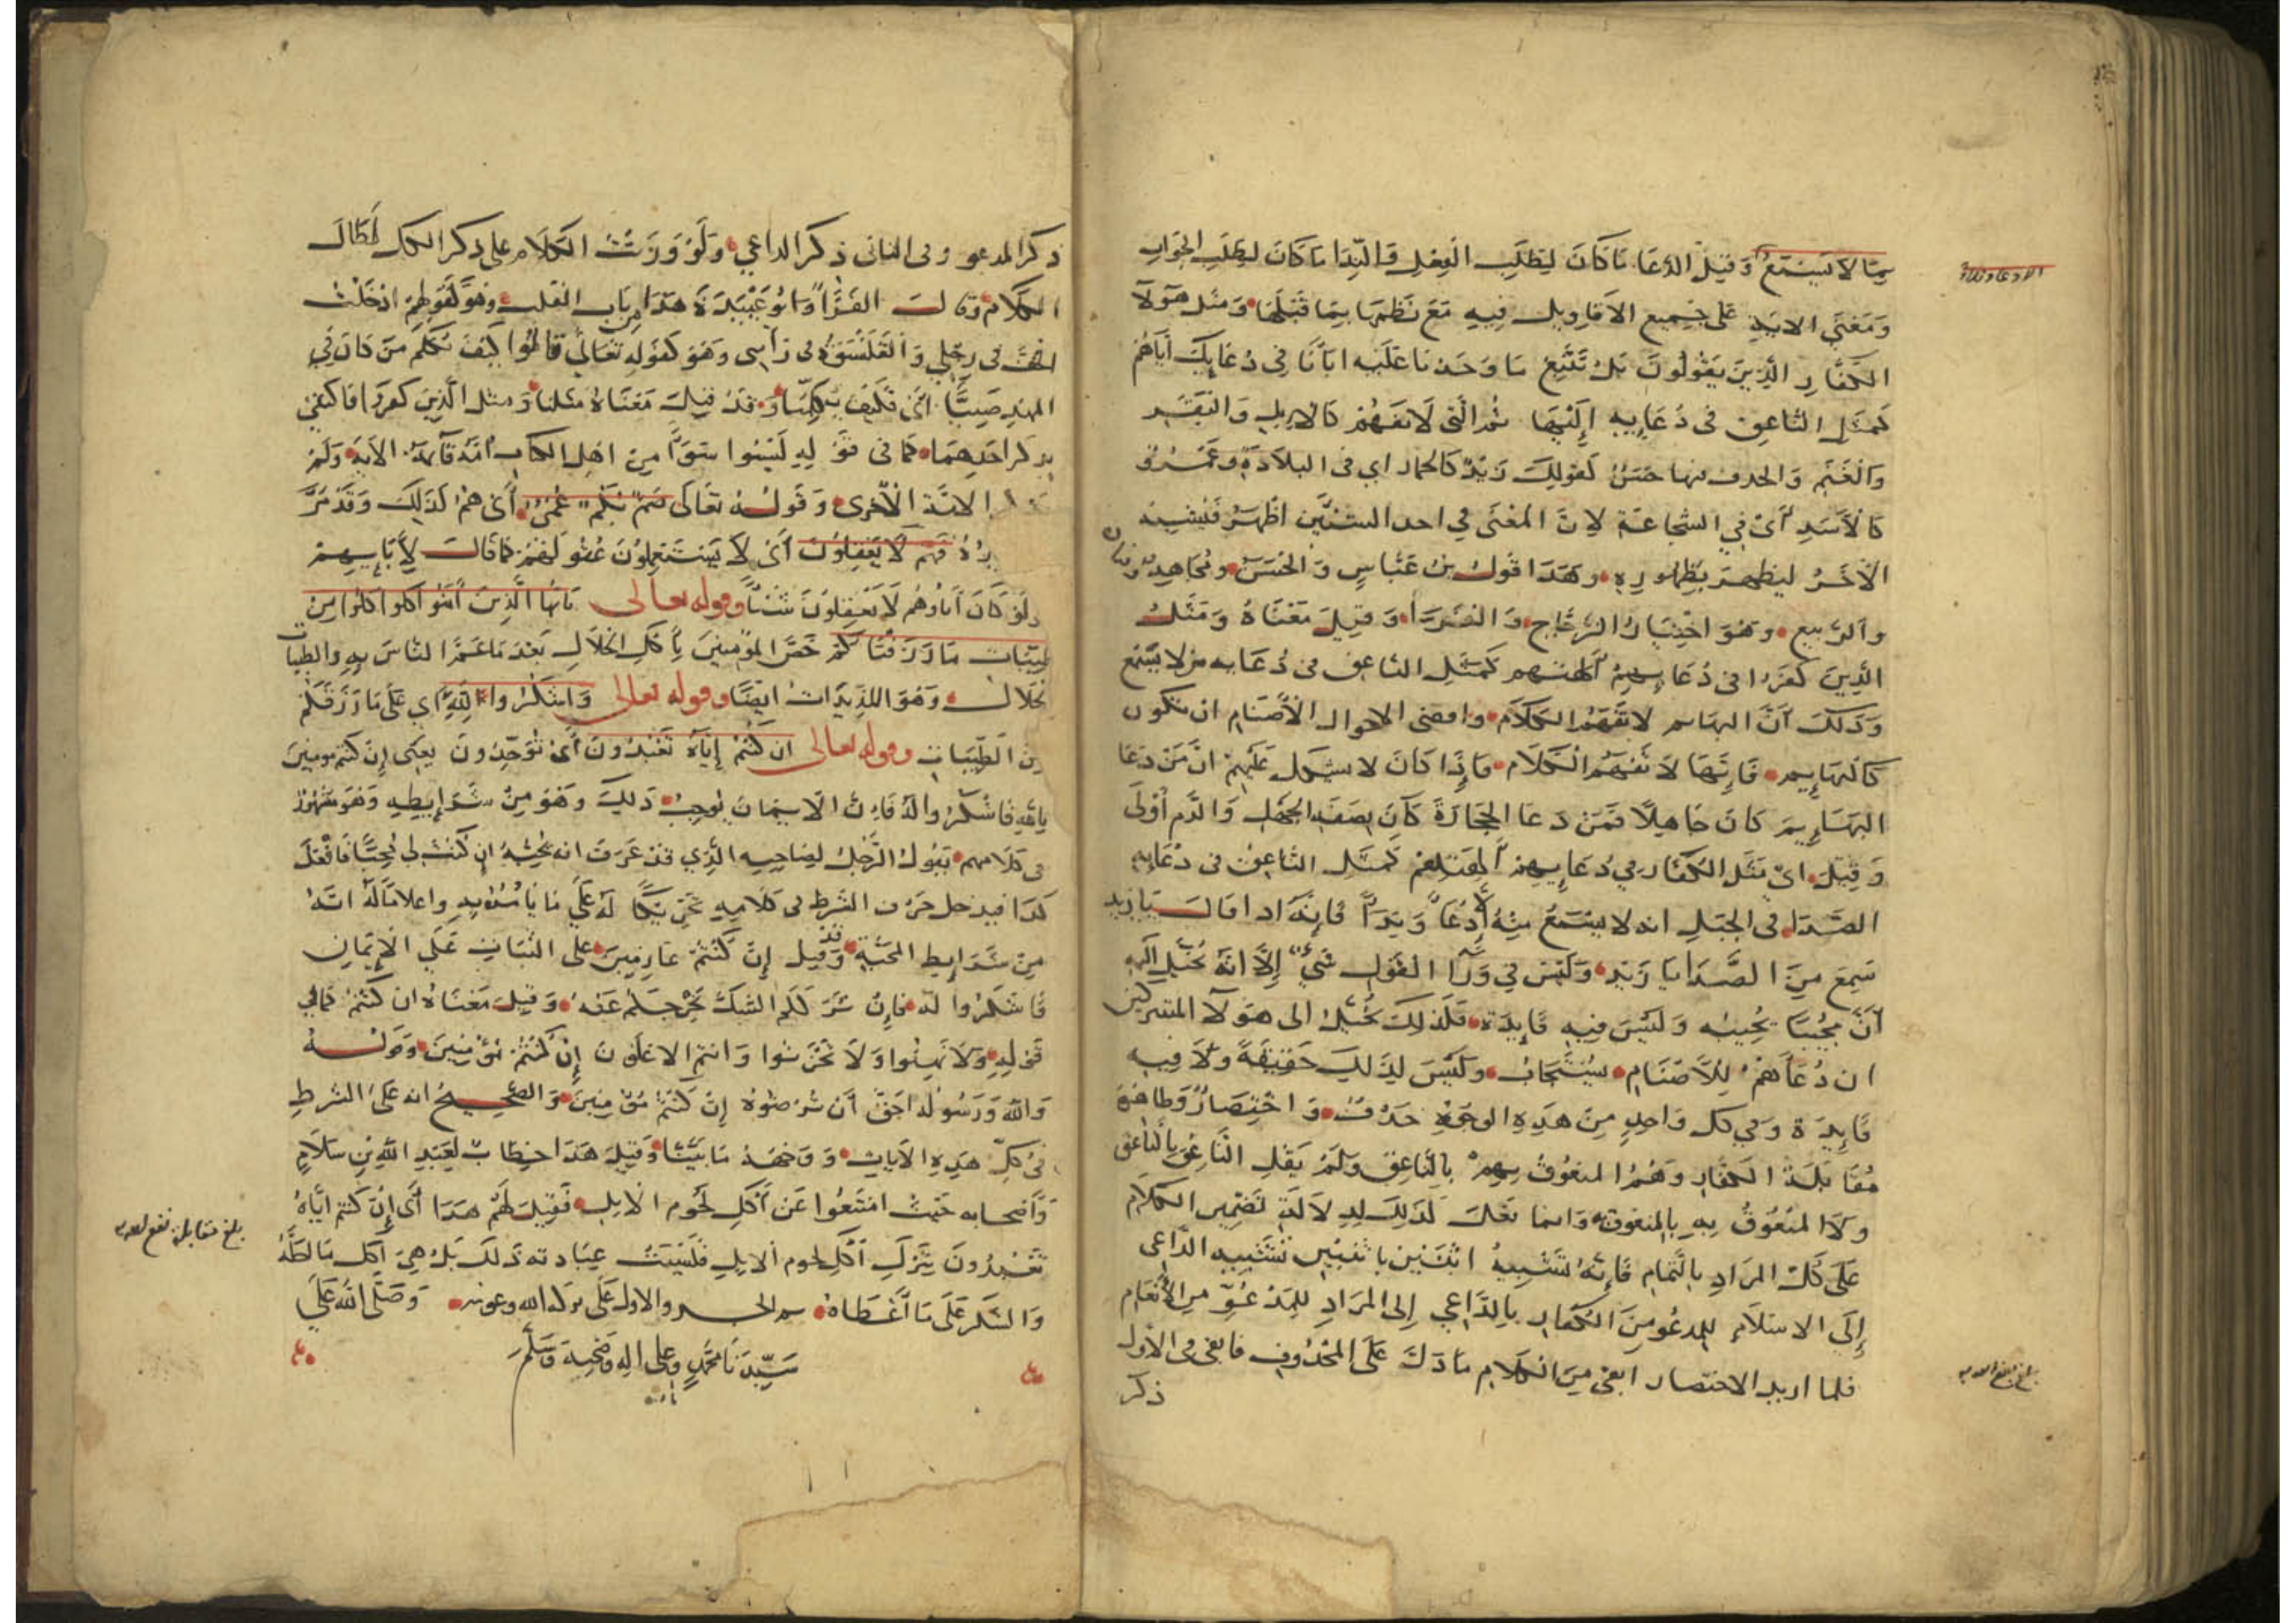 بما لا يسمع وقيل الدعا ما كان لطلب الفعل والندا ما كان لطلب الجواب
الا دعا وندا
ومعنى الاية على جميع الاقاويل فيه مع نظمها بما قبلها ومثل هولا
الكفار الذين يقولون بل نتبع ما وجدنا عليه ابانا في دعايك اياهم
كمثل الناعق في دعايه إليها ثم التي لا تفهم كالابل والبقر
والغنم والحذف منها حسن كقولك زيد كالحمار اي في البلادة وعمرو
كالاسد أي في الشجاعة لان المعنى في احد الشيئين اظهر فيشبه
الآخر ليظهر بظهوره وهذا قول بن عباس والحسن ومجاهد
والربيع وهو اختيار الزجاج والفرا وقيل معناه ومثل
الذين كفروا في دعايهم الهتهم كمثل الناعق في دعايه من لا يسمع
وذلك أن البهايم لا تفهم الكلام واقصى الاحوال الاصنام ان تكون
كالبهايم فإنها لا تفهم الكلام فإذا كان لا يشكل عليهم ان من دعا
البهايم كان جاهلا فمن دعا الحجارة كان بصفة الجهل والذم أولى
وقيل اي مثل الكفار في دعايهم كمثل الناعق في دعايه
الصدا في الجبل انه لا يسمع منه إلا دعا وندا فإنه اذا قال يا زيد
سمع من الصدا يا زيد وليس في ورا القول شئ إلا انه يخيل اليه
أن مجيبا يجيبه وليس فيه فايدة فلذلك يخيل الى هولا المشركين
ان دعاهم للأصنام يستجاب وليس لذلك حقيقة ولا فيه
فايدة وفي كل واحد من هذه الوجوه حذف واختصار وظاهره
مقابلة الكفار وهم المنعوق بهم بالناعق ولم يقل الناعق بالناعق
ولا المنعوق به بالمنعوق وانما فعل لذلك لدلالة تضمين الكلام
على كل المراد بالتمام فإنه تشبيه اثنين باثنين تشبيه الداعي
إلى الاسلام للمدعو من الكفار بالداعي إلى المراد للمدعو من الأنعام
فلما اريد الاختصار ابقى من الكلام ما دل على المحذوف فابقى في الأول
ذكر
ذكر المدعو وفي الثاني ذكر الداعي ولو وردت الكلام على ذكر الكل لطال
الكلام وقالت الفرا وابو عبيدة هذا من باب القلب وهو كقولهم ادخلت
الخف في رجلي والقلنسوة في رأسي وهو كقوله تعالى قالوا كيف نكلم من كان في
المهد صبيا اي فكيف يكلمنا وقد قيل معناه مثلنا ومثل الذين كفروا فاكتفى
بذكر احدهما كما في قوله ليسوا سوا من اهل الكتاب امة قايمة الاية ولم
الامة الأخرى وقوله تعالى صم بكم عمي أي هم كذلك وقد مر
فهم لا يعقلون أي لا يستعملون عقولهم كما قال لآبايهم
ولو كان اباوهم لا يعقلون شيئا وقوله تعالى يا ايها الذين آمنوا كلوا من
طيبات ما رزقناكم خص المؤمنين بأكل الحلال بعد ما عم الناس به والطيبات
الحلال وهو اللذيذات ايضا وقوله تعالى واشكروا لله اي على ما رزقكم
من الطيبات وقوله تعالى ان كنتم إياه تعبدون أي توحدون يعني إن كنتم مومنين
بالله فاشكروا له فإن الايمان يوجب ذلك وهو من شرايطه وهو مشهور
في كلامهم يقول الرجل لصاحبه الذي قد عرف انه يحبه ان كنت لي محبا فافعل
كذا فيدخل حرف الشرط في كلامه تحريكا له على ما يأمره به واعلاما له انه
من شرايط المحبة وقد قيل إن كنتم عازمين على الثبات على الايمان
فاشكروا له فإن ترككم الشكر يخرجكم عنه وقيل معناه ان كنتم كما في
قوله ولا تهنوا ولا تحزنوا وانتم الاعلون إن كنتم مؤمنين وقوله
والله ورسوله احق أن يرضوه إن كنتم مؤمنين والصحيح انه على الشرط
في كل هذه الايات ووجهه ما بينا وقيل هذا خطاب لعبد الله بن سلام
وأصحابه حيث امتنعوا عن أكل لحوم الابل فقيل لهم هذا أي إن كنتم اياه
تعبدون بترك أكل لحوم الابل فليست عبادته ذلك بل هي أكل ما احله
والشكر على ما أعطاه تم الجزو الاول على بركة الله وعونه وصلى الله على
سيدنا محمد وعلى اله وصحبه وسلم
بلغ مقابلة